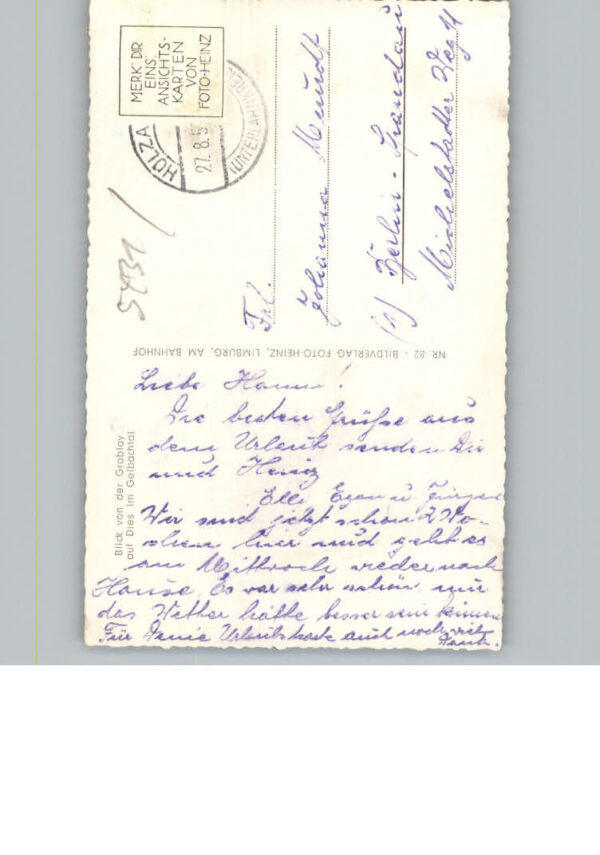 MERK' DIR
EINS
ANSICHTS-
KARTEN
VON
FOTO-HEINZ
HOLZA
27. 8. 5
(UNTERLAHNKREIS)
5431
Frl.
Johanna Mundt
(1) Berlin-Spandau
Michelstadter Weg 11
NR. 82 - BILDVERLAG FOTO-HEINZ, LIMBURG, AM BAHNHOF
Blick von der Groblay
auf Dies im Gelbachtal
Liebe Hanni!
Die besten Grüße aus
dem Urlaub senden Dir
und Heinz
Elli Egon u. Jürgen
Wir sind jetzt schon 2 Wo-
chen hier und geht es
am Mittwoch wieder nach
Hause. Es war sehr schön, nur
das Wetter hätte besser sein können
Für Deine Urlaubskarte auch noch viel
Dank.